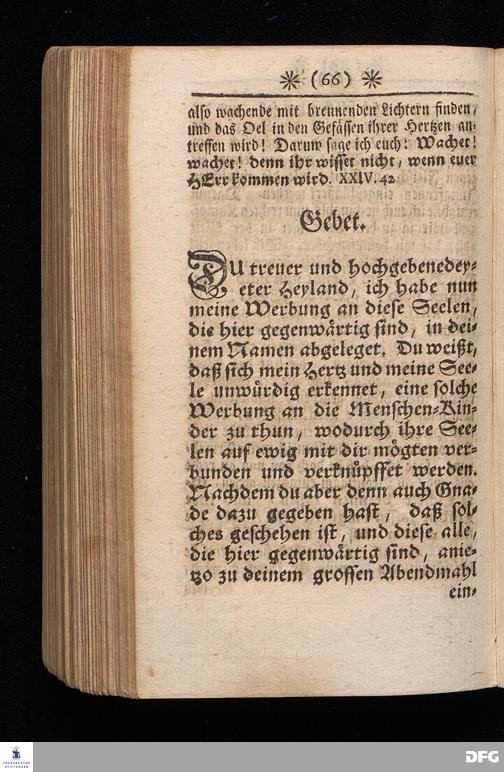 * (66) *
also wachende mit brennenden Lichtern finden,
und das Oel in den Gefässen ihrer Hertzen an-
treffen wird! Darum sage ich euch: Wachet!
wachet! denn ihr wisset nicht, wenn euer
HErr kommen wird. XXIV. 42.
Gebet.
DU treuer und hochgebenedey-
eter Heyland, ich habe nun
meine Werbung an diese Seelen,
die hier gegenwärtig sind, in dei-
nem Namen abgeleget. Du weißt,
daß sich mein Hertz und meine See-
le unwürdig erkennet, eine solche
Werbung an die Menschen-Kin-
der zu thun, wodurch ihre See-
len auf ewig mit dir mögten ver-
bunden und verknüpffet werden.
Nachdem du aber denn auch Gna-
de dazu gegeben hast, daß sol-
ches geschehen ist, und diese alle,
die hier gegenwärtig sind, anie-
tzo zu deinem grossen Abendmahl
ein-
FRANCKESCHE
STIFTUNGEN
DFG